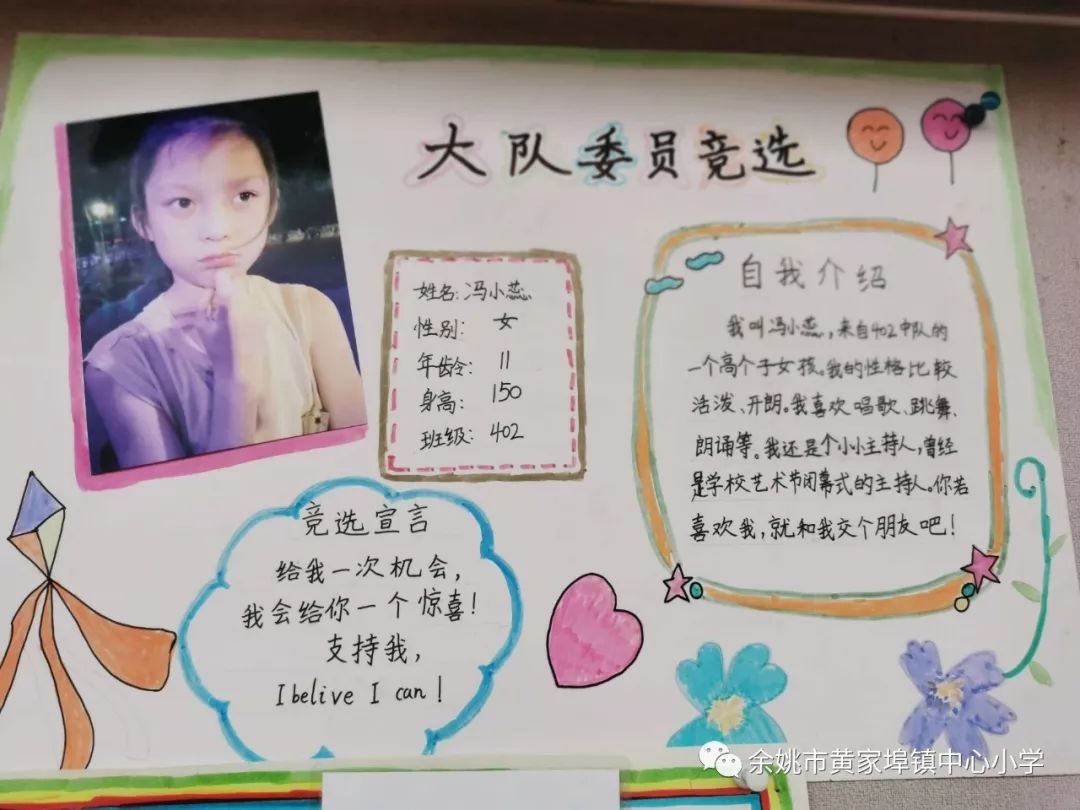 大队委员竞选
姓名:冯小蕊
性别: 女
年龄: 11
身高: 150
班级: 402
自我介绍
我叫冯小蕊,来自402中队的
一个高个子女孩。我的性格比较
活泼、开朗。我喜欢唱歌、跳舞、
朗诵等。我还是个小小主持人,曾经
是学校艺术节闭幕式的主持人。你若
喜欢我,就和我交个朋友吧!
竞选宣言
给我一次机会,
我会给你一个惊喜!
支持我,
I belive I can!
余姚市黄家埠镇中心小学